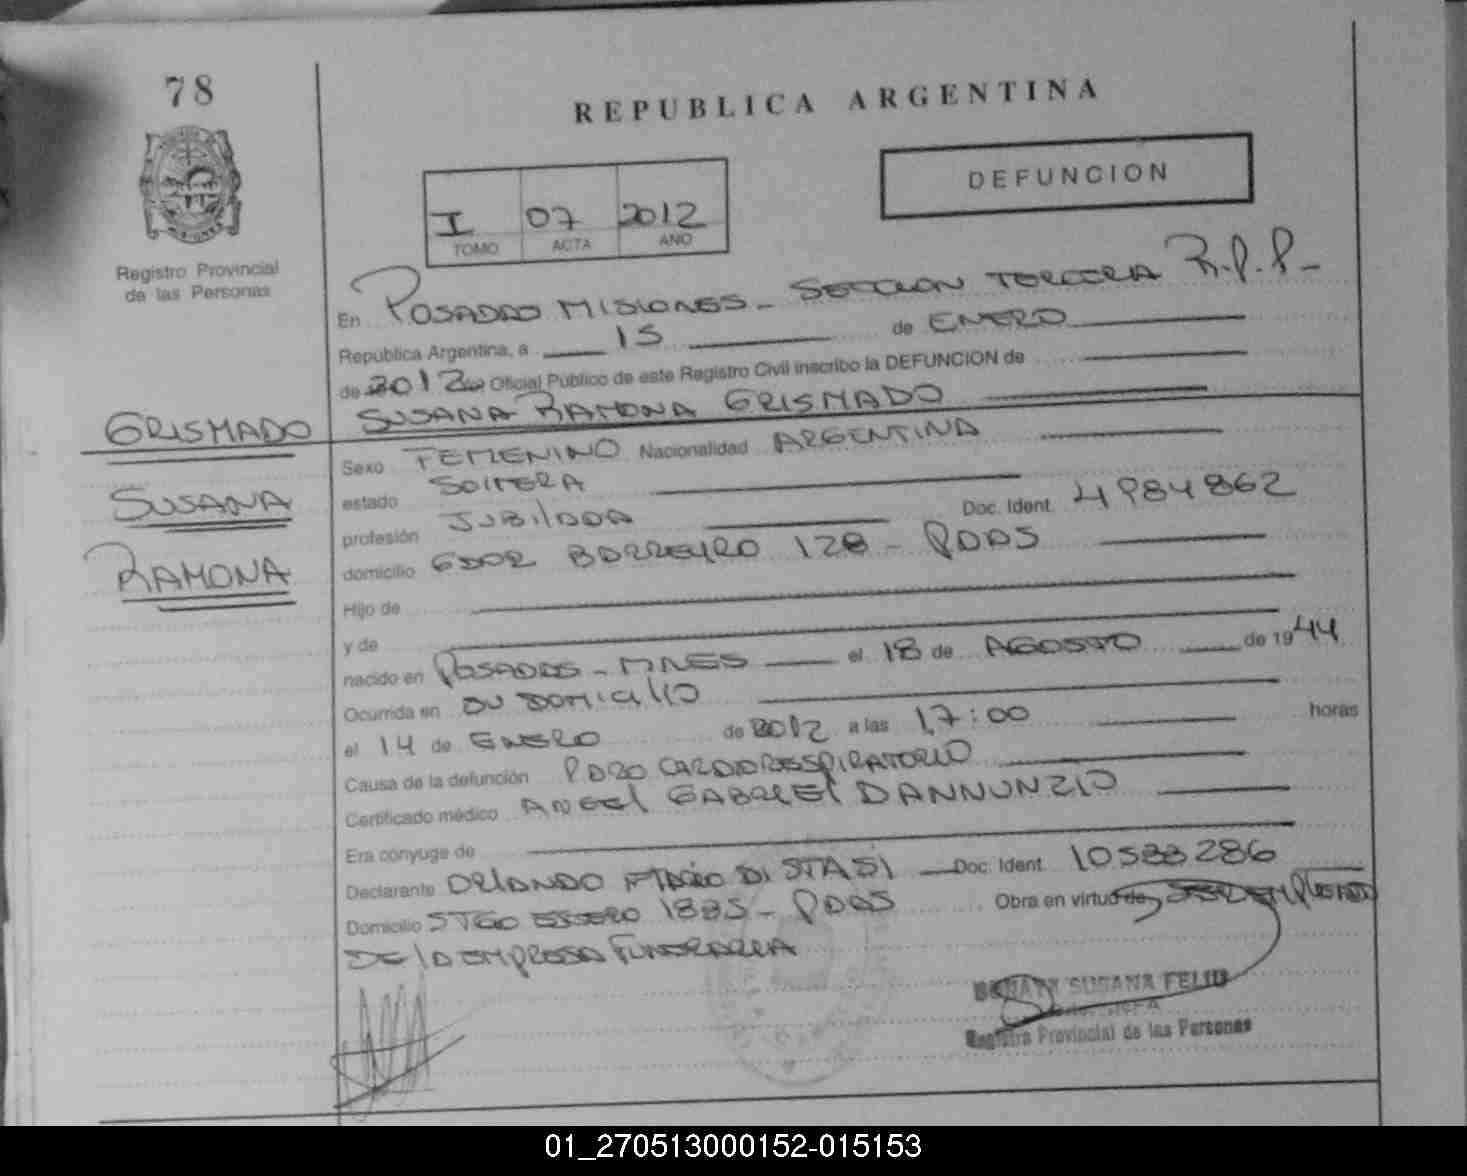 78
REPUBLICA ARGENTINA
DEFUNCION
I 07 2012
TOMO ACTA AÑO
Registro Provincial
de las Personas
En POSADAS MISIONES - SECCION TERCERA R.P.P-
República Argentina, a 15 de ENERO
de 2012 Oficial Público de este Registro Civil inscribo la DEFUNCION de
SUSANA RAMONA GRISMADO
GRISMADO
SUSANA
RAMONA
Sexo FEMENINO Nacionalidad ARGENTINA
estado SOLTERA
profesión JUBILADA Doc. Ident. 4984862
domicilio GDOR BARREYRO 128 - PDAS
Hijo de
y de
nacido en POSADAS - MNES el 18 de AGOSTO de 1944
Ocurrida en SU DOMICILIO
el 14 de ENERO de 2012 a las 17:00 horas
Causa de la defunción PARO CARDIORESPIRATORIO
Certificado médico ANGEL GABRIEL DANNUNZIO
Era cónyuge de
Declarante ORLANDO MARIO DI STASI Doc. Ident. 10583286
Domicilio STGO ESTERO 1885 - PDAS Obra en virtud de SER EMPLEADO
DE LA EMPRESA FUNERARIA
SUSANA
Registro Provincial de las Personas
01_270513000152-015153